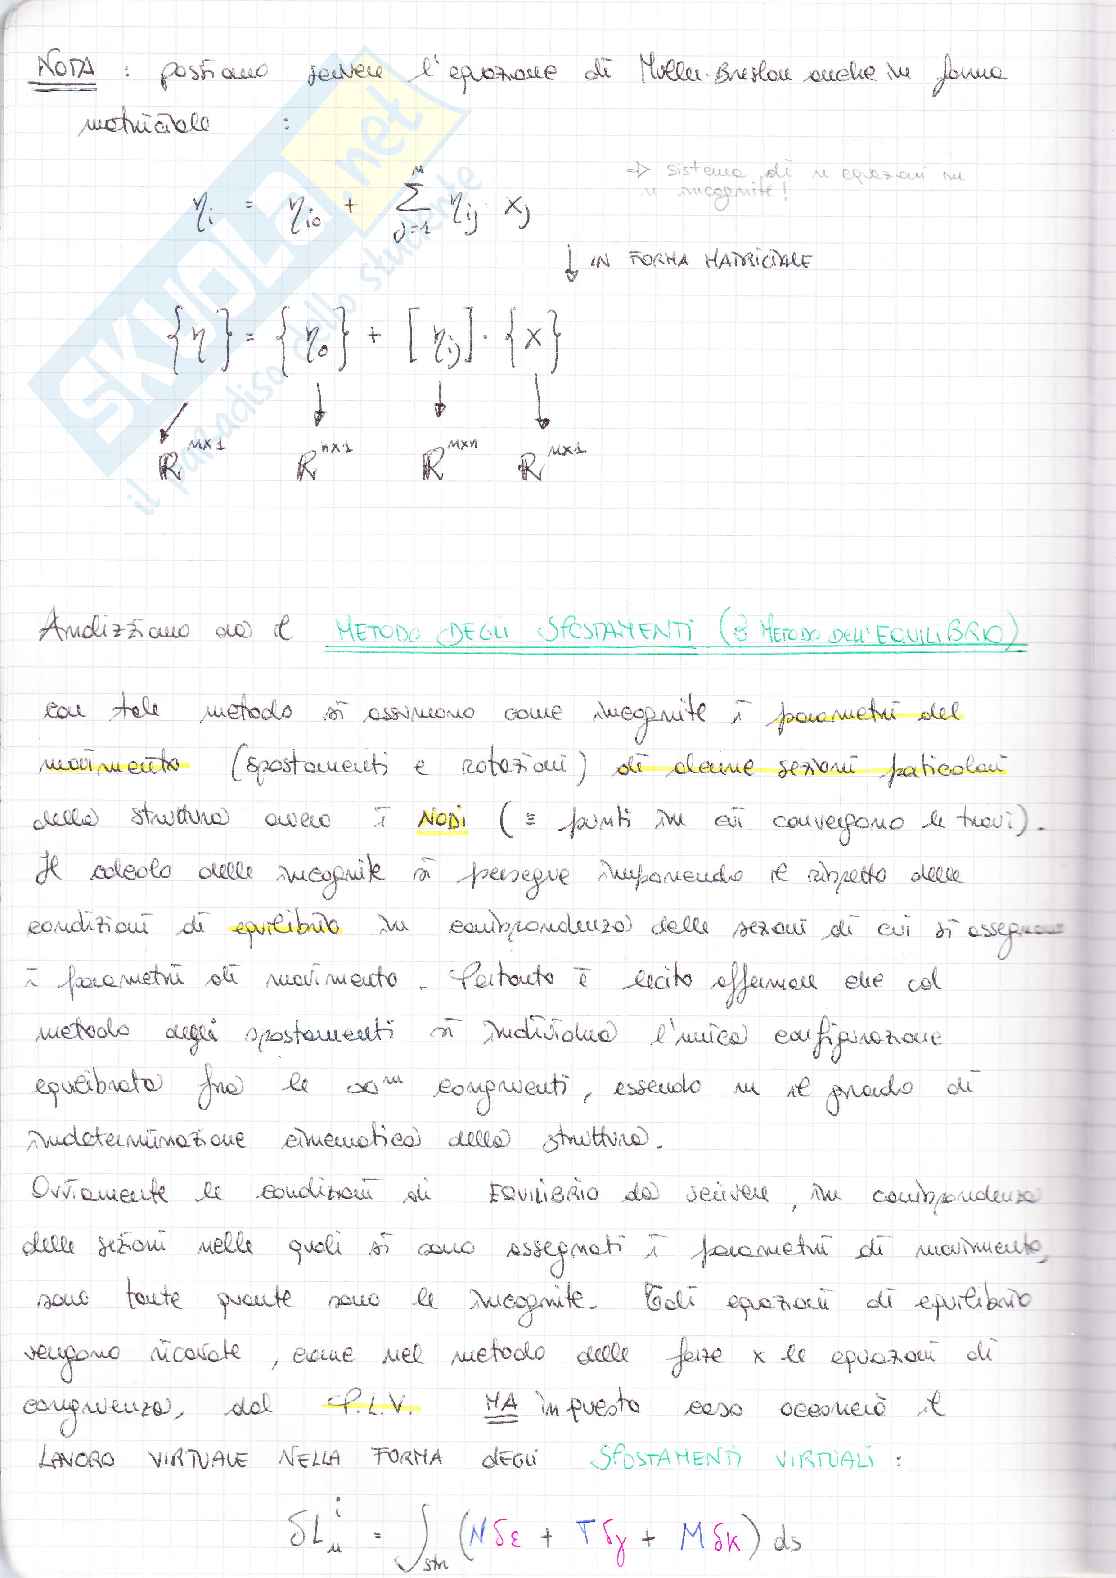 NOTA : possiamo scrivere l'equazione di Muller-Breslau anche in forma
matriciale :
ηi = ηio + Σ ηij · xj
n
j=1
=> sistema di n equazioni in
n incognite!
↓ IN FORMA MATRICIALE
{η} = {ηo} + [ηij] · {x}
ℝ^n×1 ℝ^n×1 ℝ^n×n ℝ^n×1
SKUOLA.net
il paradiso dello studente
Analizziamo ora il METODO DEGLI SPOSTAMENTI (o METODO DELL'EQUILIBRIO)
con tale metodo si assumono come incognite i parametri del
movimento (spostamenti e rotazioni) di alcune sezioni paticolari
della struttura ovvero i NODI (≡ punti in cui convergono le travi).
Il calcolo delle incognite si persegue imponendo il rispetto delle
condizioni di equilibrio in corrispondenza delle sezioni di cui si assegnano
i parametri di movimento. Pertanto è lecito affermare che col
metodo degli spostamenti si individua l'unica configurazione
equilibrata fra le ∞^m congruenti, essendo m il grado di
indeterminazione cinematica della struttura.
Ovviamente le condizioni di EQUILIBRIO da scrivere, in corrispondenza
delle sezioni nelle quali si sono assegnati i parametri di movimento,
sono tante quante sono le incognite. Tali equazioni di equilibrio
vengono ricavate, come nel metodo delle forze x le equazioni di
congruenza, dal P.L.V. MA in questo caso occorrerà il
LAVORO VIRTUALE NELLA FORMA DEGLI SPOSTAMENTI VIRTUALI :
δL = ∫str (Nδε + Tδγ + Mδk) ds